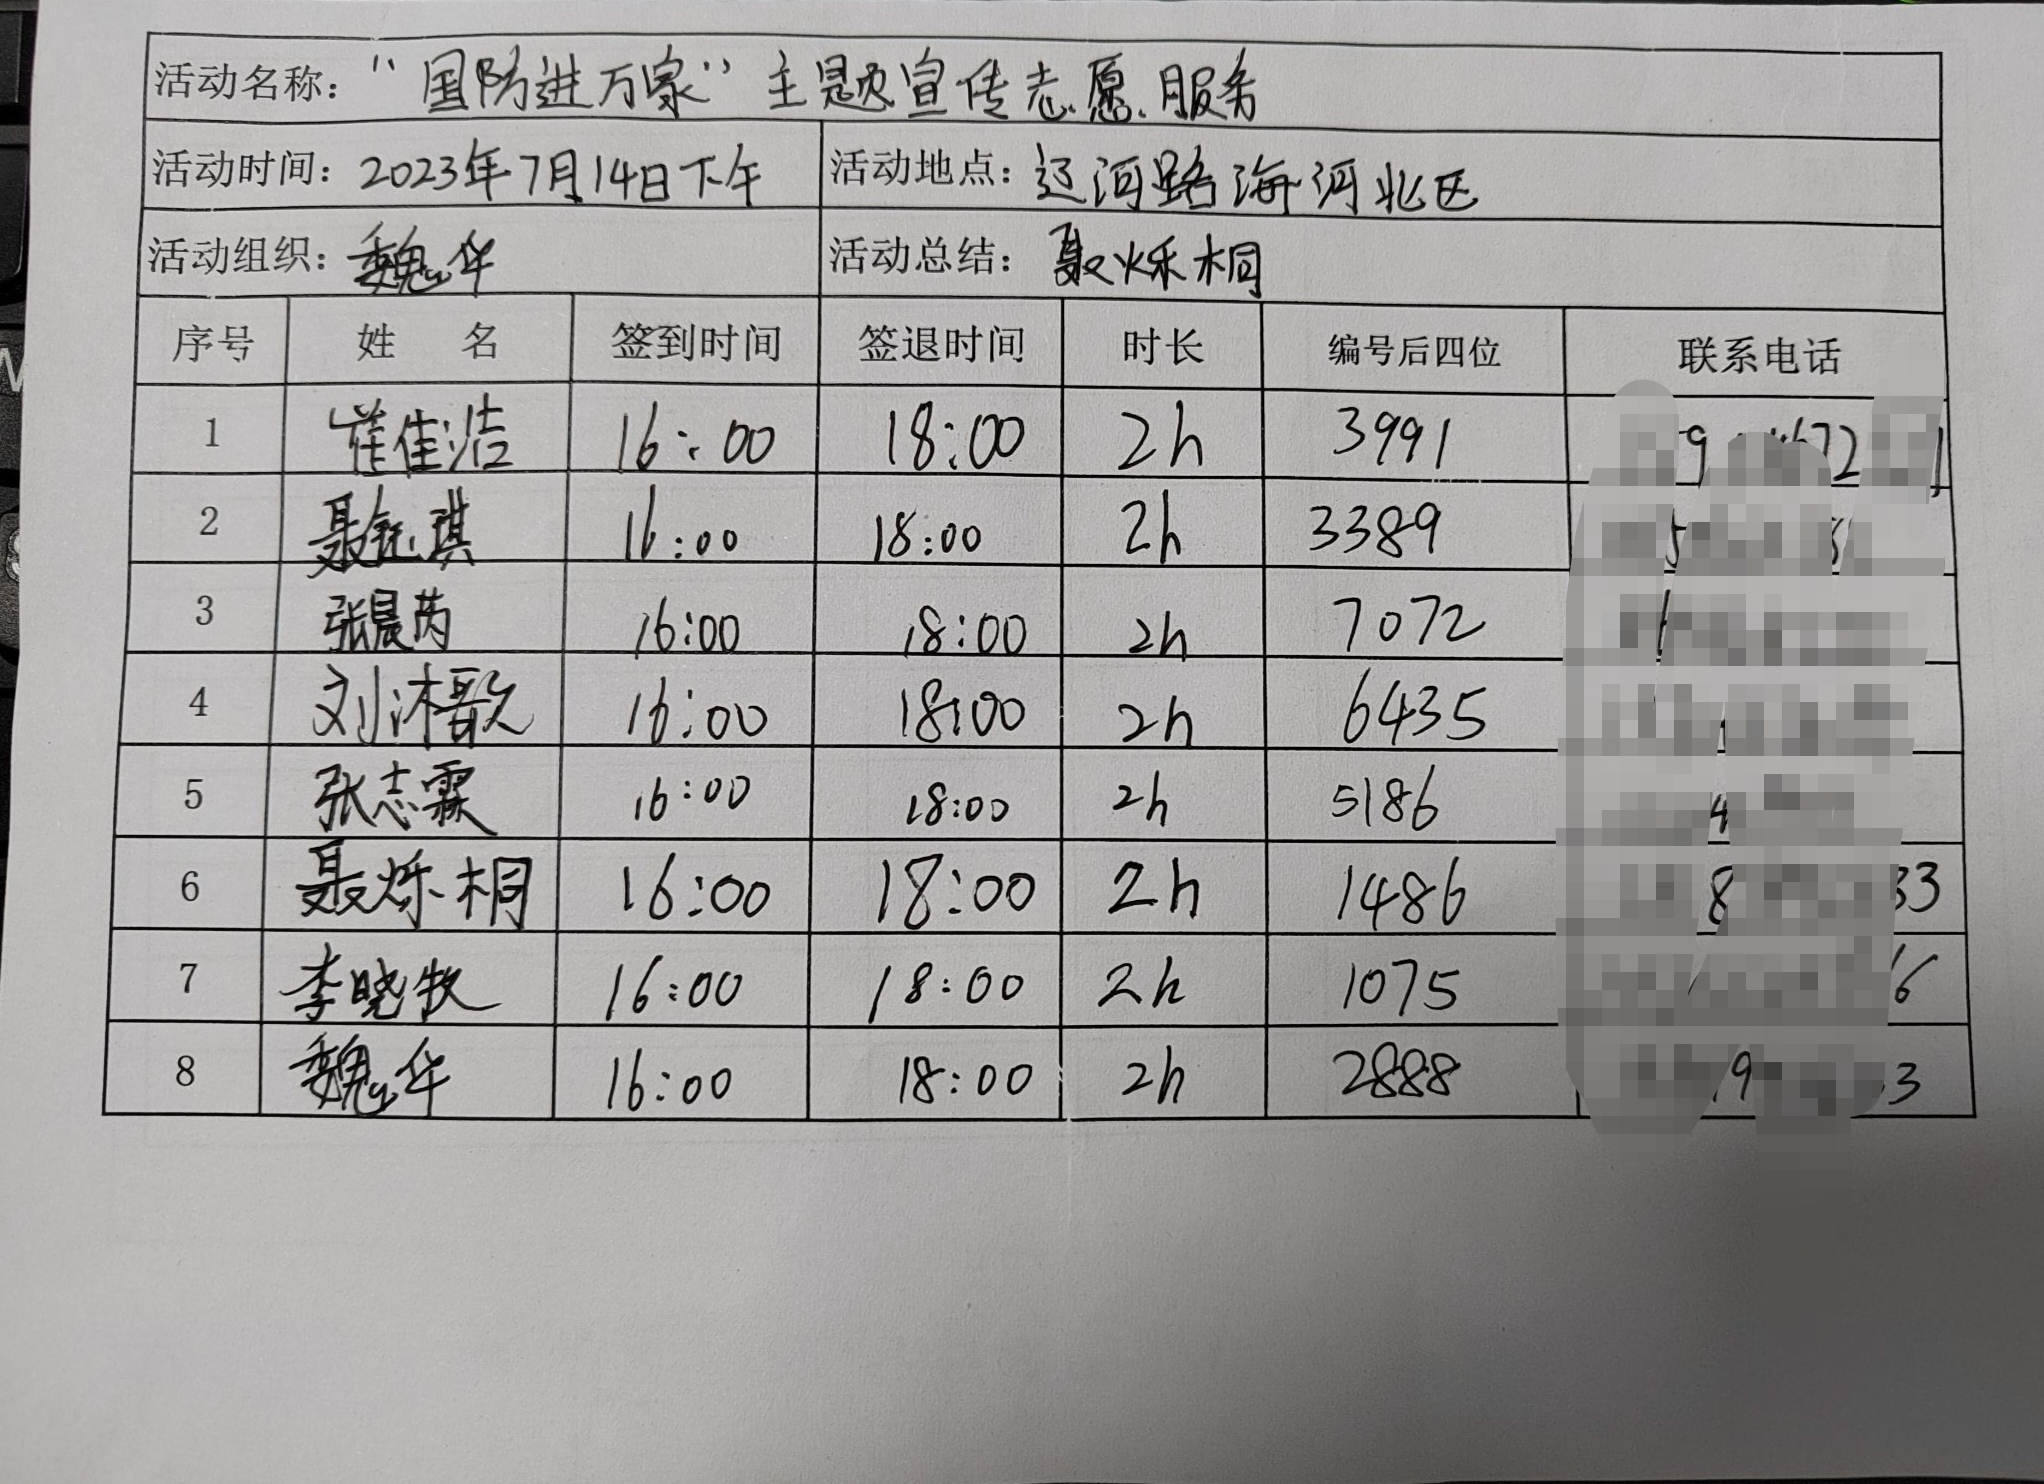 活动名称:“国防进万家”主题宣传志愿服务
活动时间:2023年7月14日下午 活动地点:辽河路海河北区
活动组织:魏华 活动总结:聂烁桐
序号 姓名 签到时间 签退时间 时长 编号后四位 联系电话
1 崔佳洁 16:00 18:00 2h 3991
2 聂钰琪 16:00 18:00 2h 3389
3 张晨芮 16:00 18:00 2h 7072
4 刘沐歌 16:00 18:00 2h 6435
5 张志霖 16:00 18:00 2h 5186
6 聂烁桐 16:00 18:00 2h 1486
7 李晓牧 16:00 18:00 2h 1075
8 魏华 16:00 18:00 2h 2888